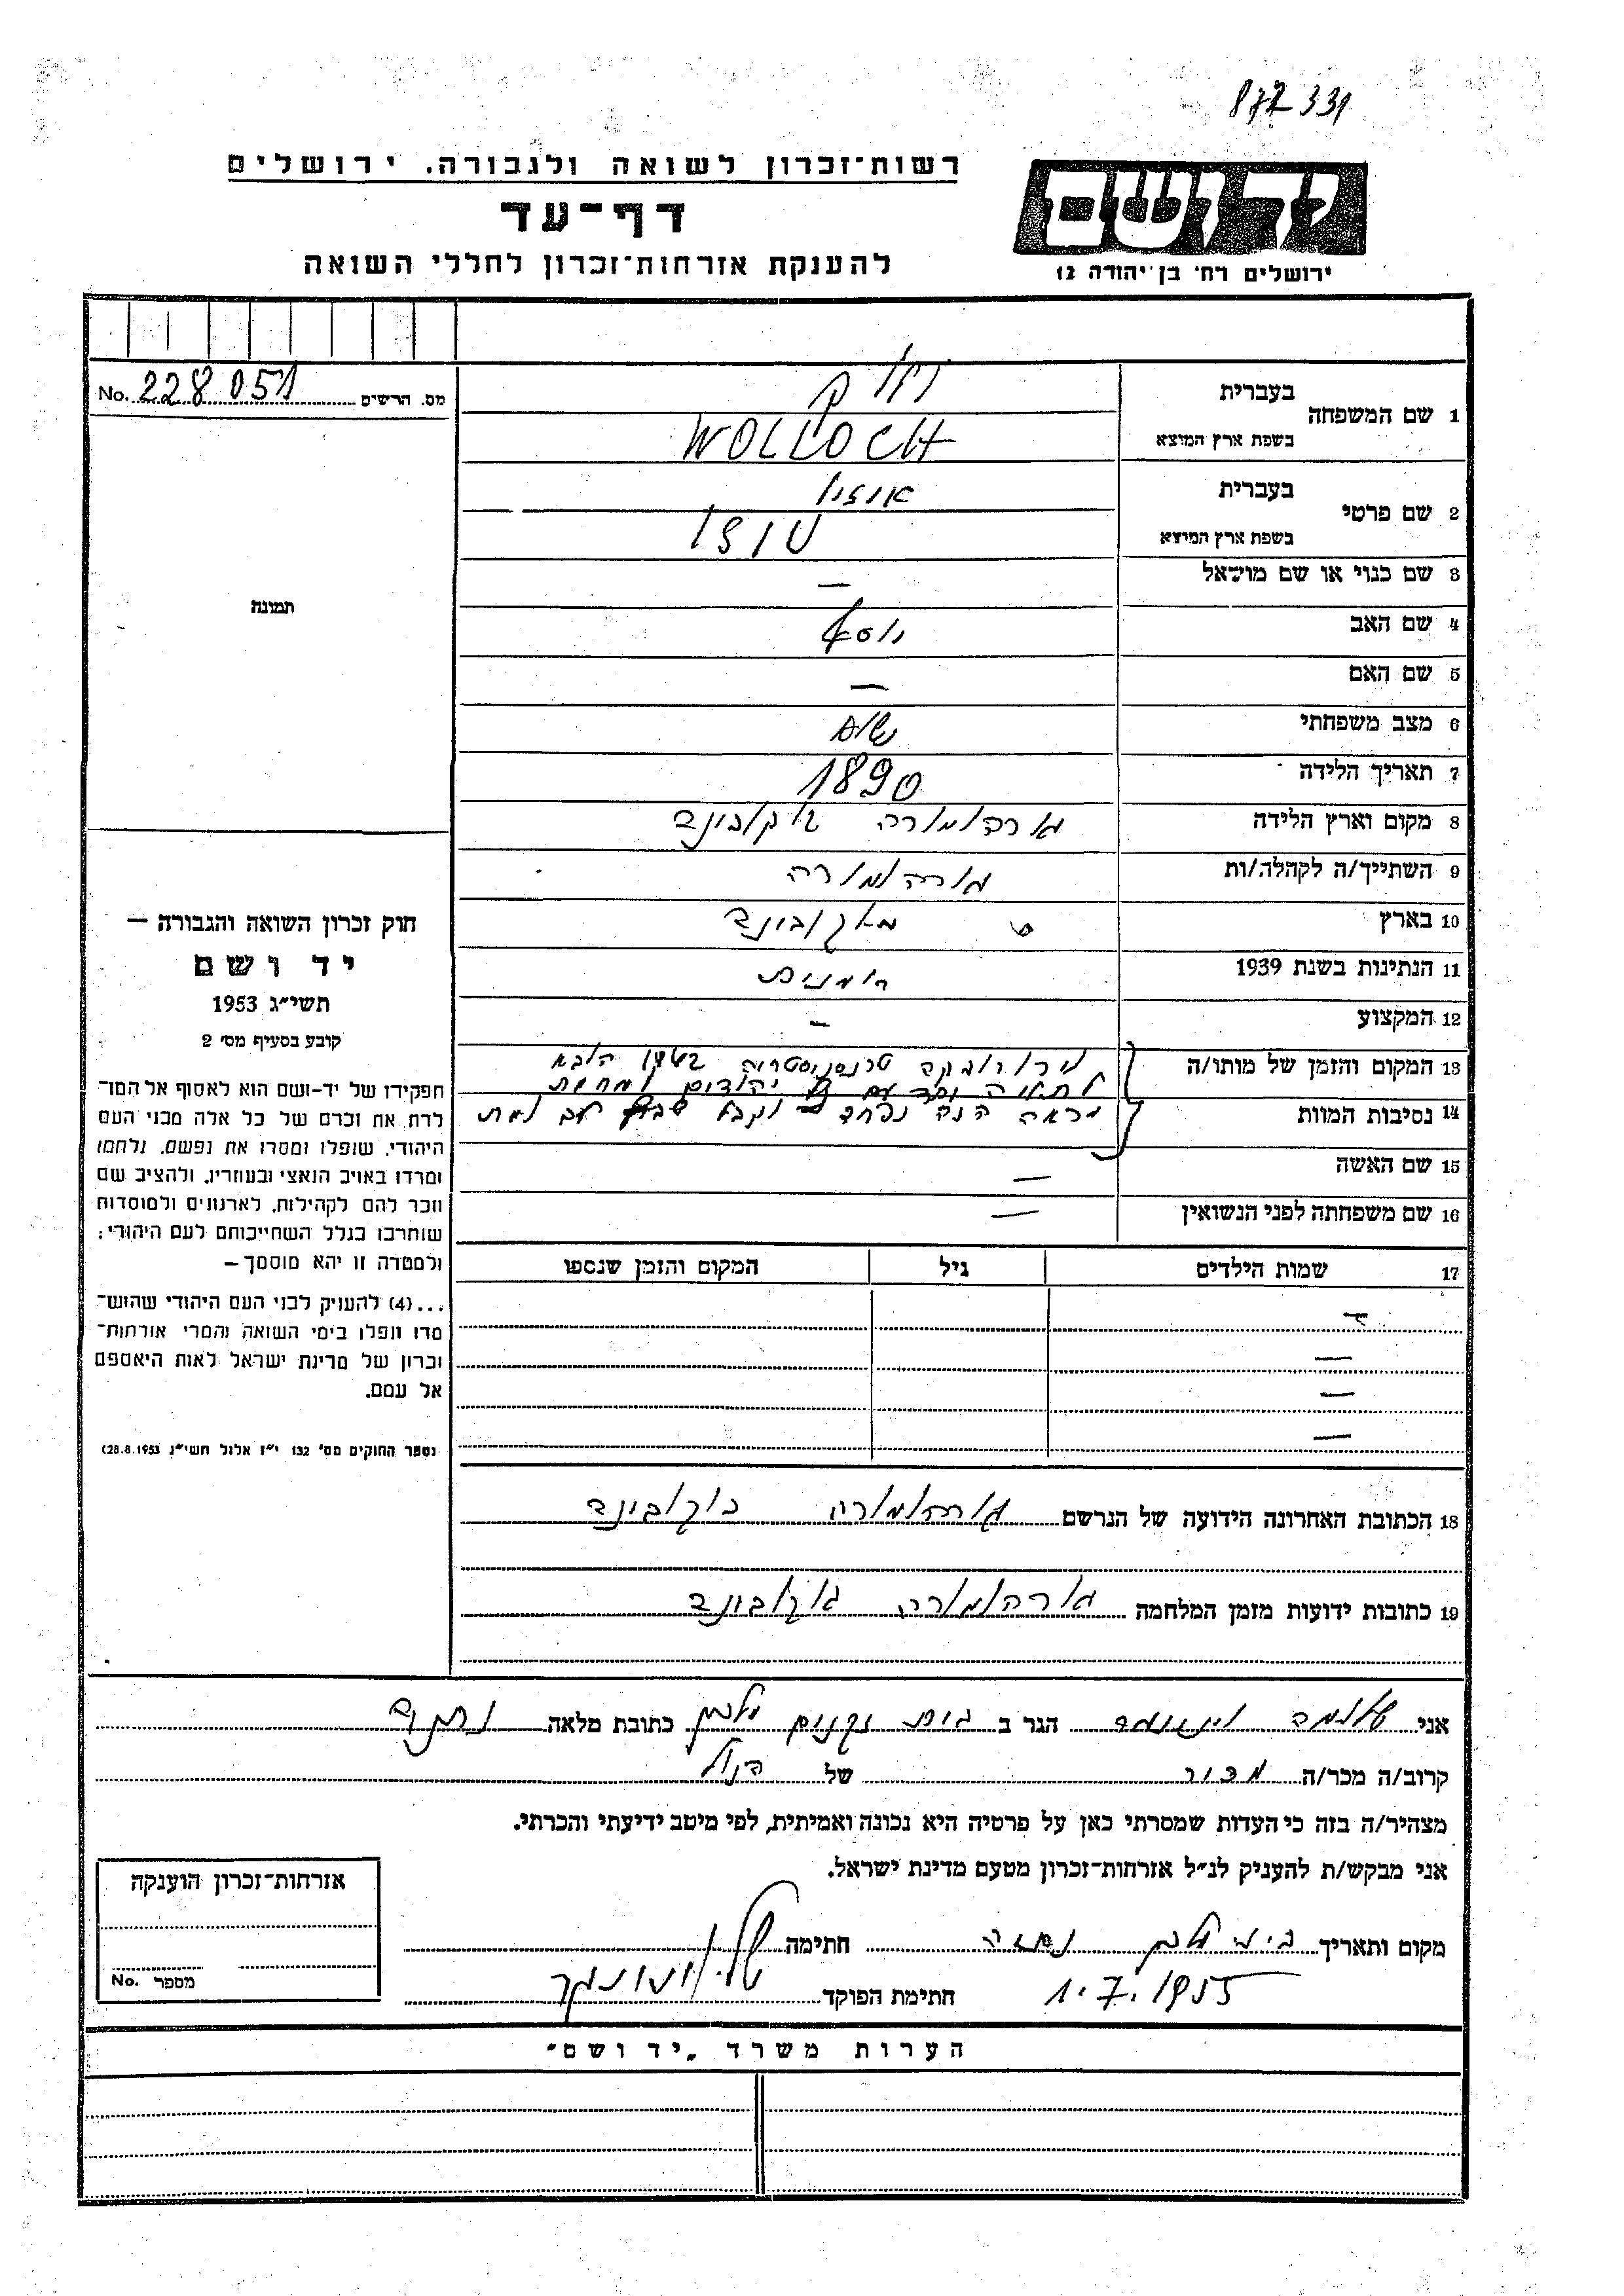 877331
רשות־זכרון לשואה ולגבורה. ירושלים
דף־עד
להענקת אזרחות־זכרון לחללי השואה
יד ושם
ירושלים רח׳ בן־יהודה 12
מס. הרשים No. 228051
1 שם המשפחה
בעברית
בשפת ארץ המוצא WOLLOCH
2 שם פרטי
בעברית
בשפת ארץ המוצא
תמונה
3 שם כנוי או שם מושאל —
4 שם האב יוסף
5 שם האם —
6 מצב משפחתי נשוי
7 תאריך הלידה 1890
8 מקום וארץ הלידה גורהומורה בוקובינה
9 השתייך/ה לקהלה/ות גורהומורה
10 בארץ בוקובינה
11 הנתינות בשנת 1939 רומנית
12 המקצוע —
13 המקום והזמן של מותו/ה טרנסניסטריה הובא
לתליה עם יהודים ומחמת
14 נסיבות המוות מראה הזה נפחד וקבל שבץ לב ומת
15 שם האשה —
16 שם משפחתה לפני הנשואין —
17 שמות הילדים גיל המקום והזמן שנספו
—
—
—
—
18 הכתובת האחרונה הידועה של הנרשם גורהומורה בוקובינה
19 כתובות ידועות מזמן המלחמה גורהומורה בוקובינה
חוק זכרון השואה והגבורה —
יד ושם
תשי״ג 1953
קובע בסעיף מס׳ 2
תפקידו של יד-ושם הוא לאסוף אל המו־
לדת את זכרם של כל אלה מבני העם
היהודי, שנפלו ומסרו את נפשם, נלחמו
ומרדו באויב הנאצי ובעוזריו, ולהציב שם
וזכר להם לקהילות, לארגונים ולמוסדות
שנחרבו בגלל השתייכותם לעם היהודי;
ולמטרה זו יהא מוסמך —
...(4) להעניק לבני העם היהודי שהוש־
מדו ונפלו בימי השואה והמרי אזרחות־
זכרון של מדינת ישראל לאות היאספם
אל עמם.
(ספר החוקים מס׳ 132 י״ז אלול תשי״ג 28.8.1953)
אני הגר ב בית זקנים מלבן כתובת מלאה
קרוב/ה מכר/ה מכיר של הנ״ל
מצהיר/ה בזה כי העדות שמסרתי כאן על פרטיה היא נכונה ואמיתית, לפי מיטב ידיעתי והכרתי.
אני מבקש/ת להעניק לנ״ל אזרחות־זכרון מטעם מדינת ישראל.
מקום ותאריך מלבן חתימה
1.7.1955 חתימת הפוקד
אזרחות־זכרון הוענקה
מספר No.
הערות משרד „יד ושם״